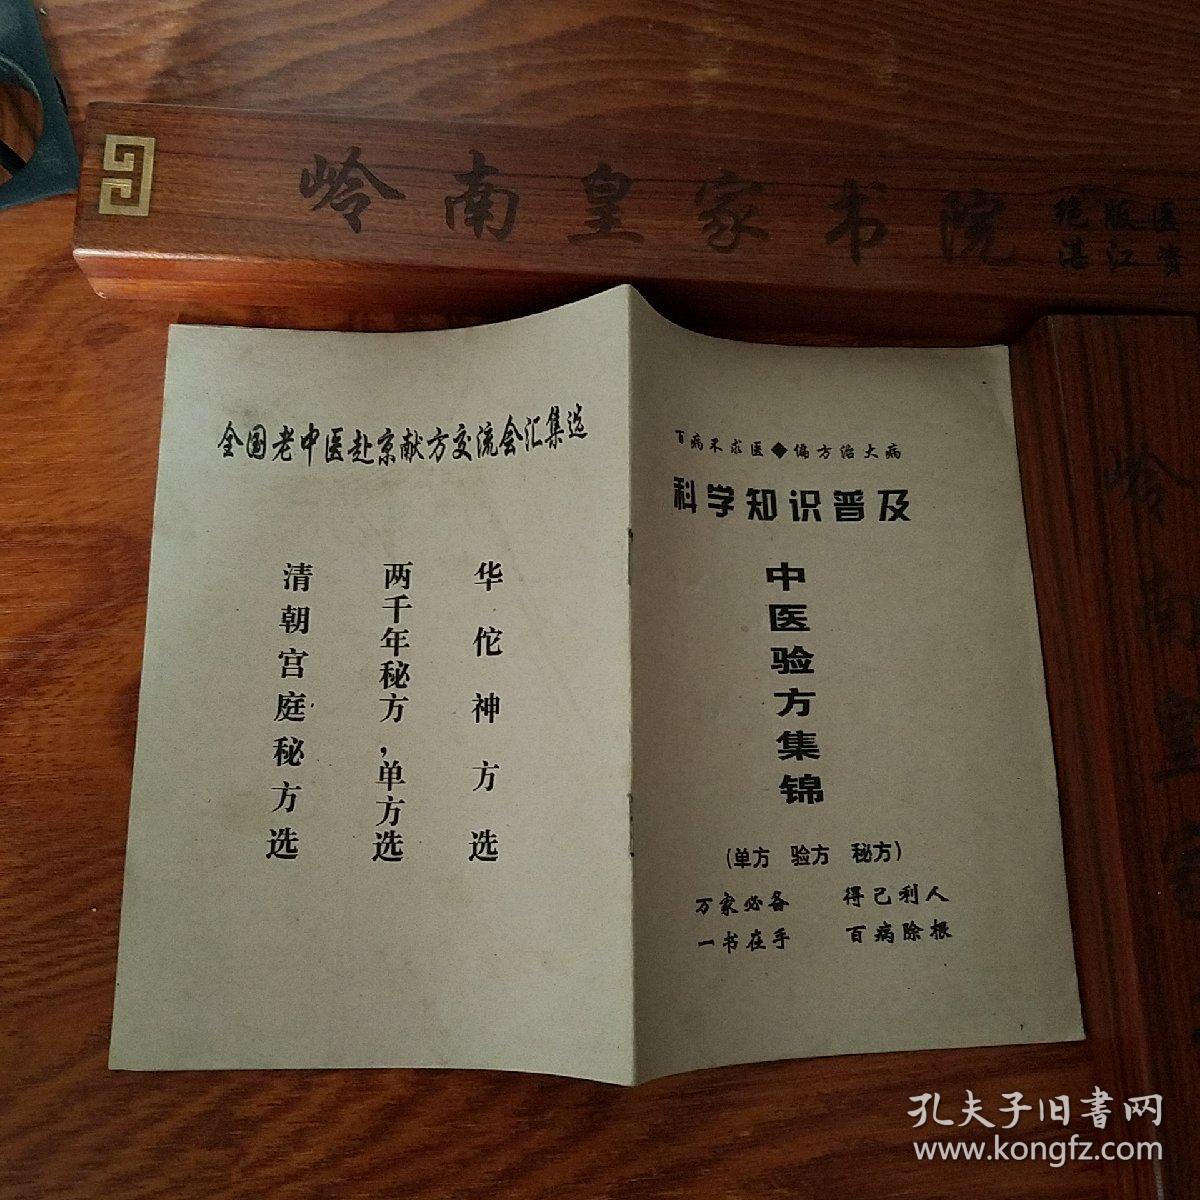 岭南皇家书院
绝版医
湛江资
全国老中医赴京献方交流会汇集选
华佗神方选
两千年秘方,单方选
清朝宫庭秘方选
百病不求医◆偏方治大病
科学知识普及
中医验方集锦
(单方 验方 秘方)
万家必备 得己利人
一书在手 百病除根
岭南皇家
孔夫子旧書网
www.kongfz.com